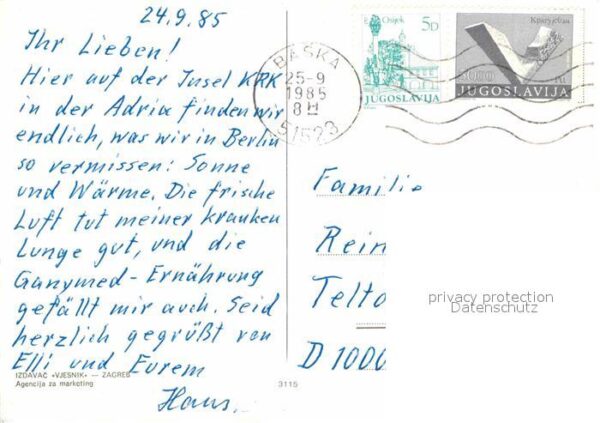 24.9.85
Ihr Lieben!
Hier auf der Insel KRK
in der Adria finden wir
endlich, was wir in Berlin
so vermissen: Sonne
und Wärme. Die frische
Luft tut meiner kranken
Lunge gut, und die
Ganymed-Ernährung
gefällt mir auch. Seid
herzlich gegrüßt von
Elli und Eurem
Hans.
IZDAVAČ «VJESNIK» — ZAGREB
Agencija za marketing
3115
Osijek
5D
JUGOSLAVIJA
JUGOSLAVIJA
BAŠKA
25-9
1985
8H
51523
Familie
Rein
Telto
D 1000
privacy protection
Datenschutz